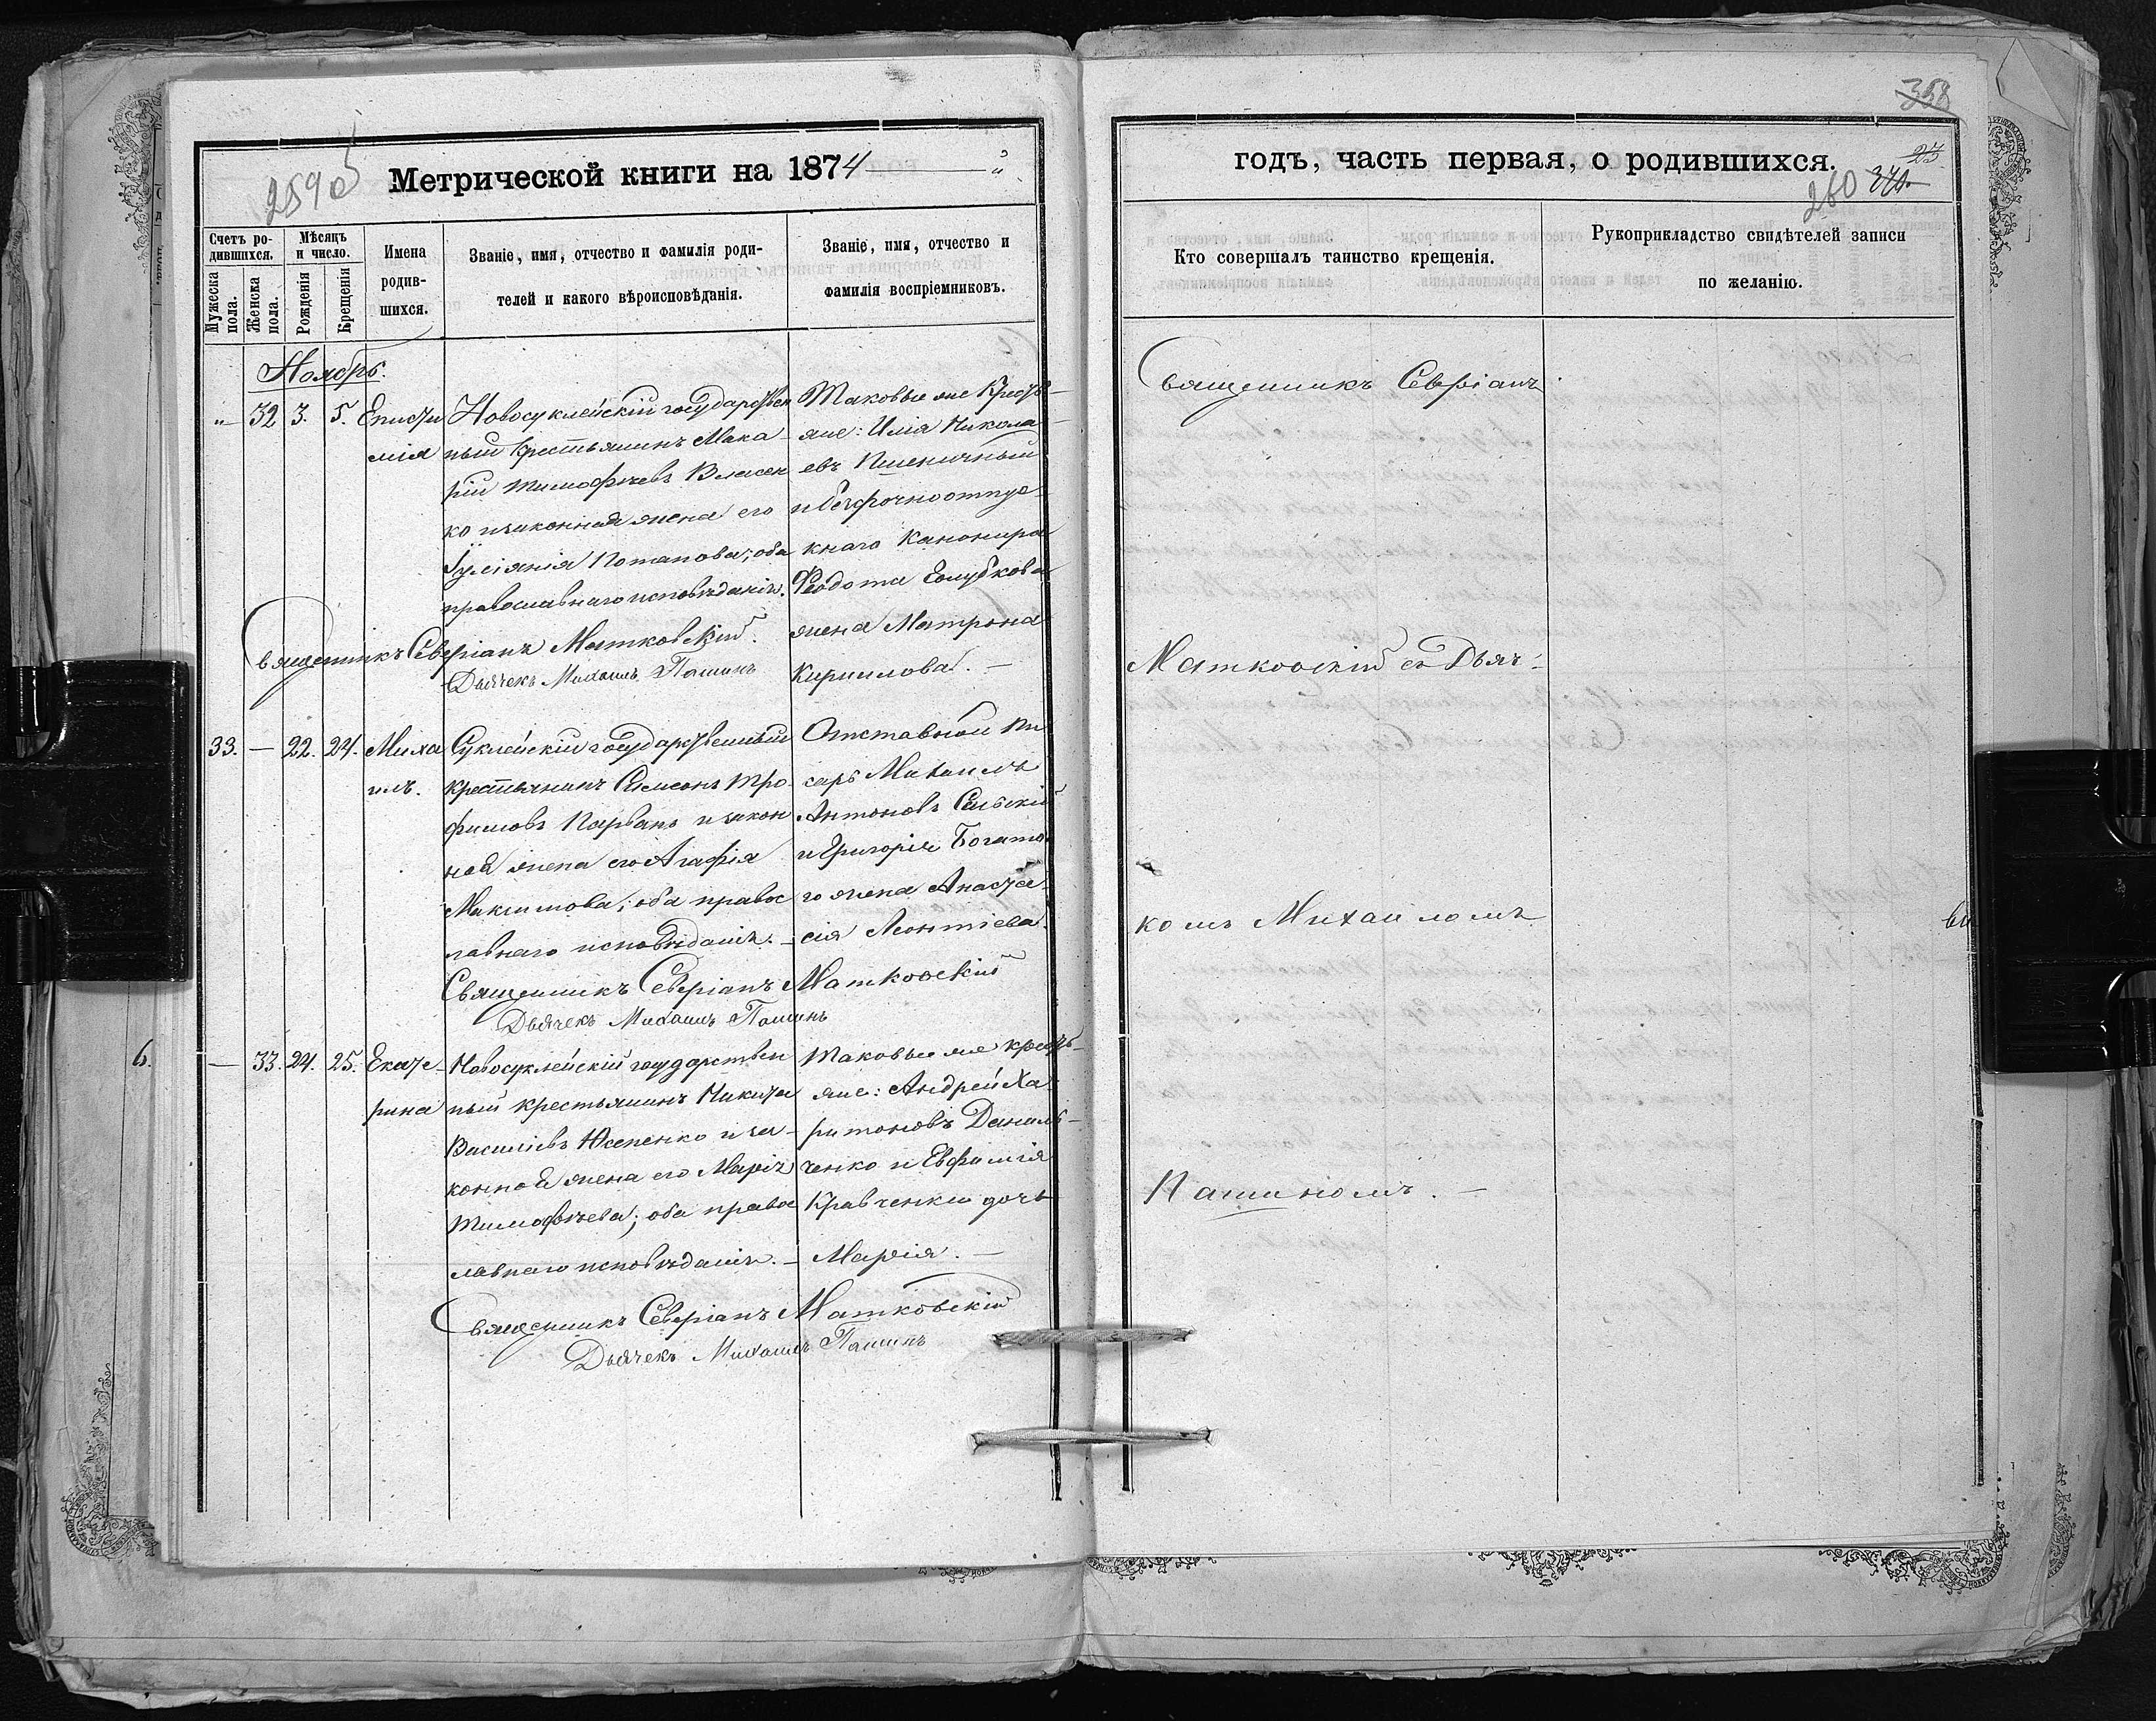 358
Метрической книги на 1874
годъ, часть первая, о родившихся.
23
260
Счетъ ро-
дившихся.
Мужеска
пола.
Женска
пола.
Мѣсяцъ
и число.
Рожденія
Крещенія
Имена
родив-
шихся.
Званіе, имя, отчество и фамилія роди-
телей и какого вѣроисповѣданія.
Званіе, имя, отчество и
фамилія воспріемниковъ.
Кто совершалъ таинство крещенія.
Рукоприкладство свидѣтелей записи
по желанію.
Ноябрь.
32 3. 5.
Новосуклейскій государствен
ный крестьянинъ Мака-
рій Тимофѣевъ Власен
ко и законная жена его
Іуліянія Потапова; оба
православнаго исповѣданія.
Таковые же Кресть-
яне: Илія Никола-
евъ Пшеничный
и безсрочноотпус-
кнаго Канонира
Феодота Голубкова
жена Матрона
Кириллова. —
Священникъ Северіанъ Матковскій.
Дьячекъ Михаилъ Пашинъ
33. — 22. 24. Миха
илъ.
Суклейскій государственный
крестьянинъ Симеонъ Тро-
фимовъ Карванъ и закон
ная жена его Агафія
Максимова; оба правос
лавнаго исповѣданія. —
Отставной пи
сарь Михаилъ
Антоновъ
и Григорія Богато-
го жена Анаста-
сія Леонтіева.
Священникъ Северіанъ Матковскій
Дьячекъ Михаилъ Пашинъ
6.
— 33. 24. 25. Екате-
рина
Новосуклейскій государствен
ный крестьянинъ Никита
Василіевъ и за-
конная жена его Марія
Тимофѣева; оба правос
лавнаго исповѣданія. —
Таковые же кресть-
яне: Андрей Ха-
ритоновъ Даниль-
ченко и Евфимія
Кравченки дочь
Марія. —
Священникъ Северіанъ Матковскій
Дьячекъ Михаилъ Пашинъ
Священникъ Северіанъ
Матковскій съ Дьяч-
комъ Михаиломъ
Пашиномъ. —